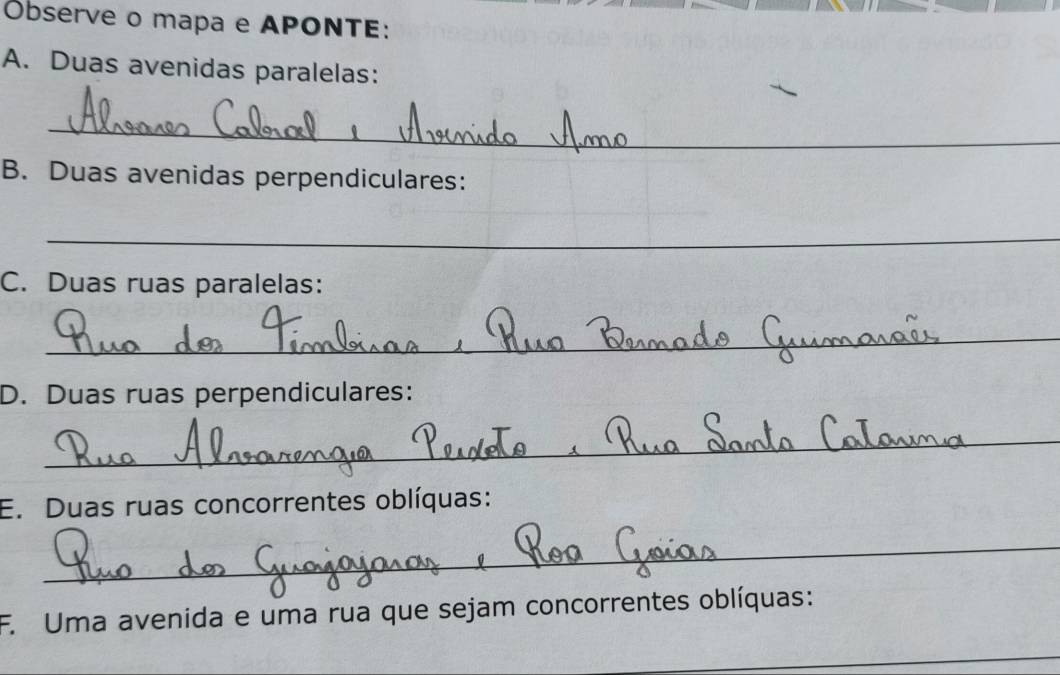 Observe o mapa e APONTE:
A. Duas avenidas paralelas:
Alvares Cabral e Avenida Amo
B. Duas avenidas perpendiculares:
C. Duas ruas paralelas:
Rua dos Timbiras e Rua Bernado Guimarães
D. Duas ruas perpendiculares:
Rua Alvarenga Peixoto e Rua Santa Catarina
E. Duas ruas concorrentes oblíquas:
Rua dos Guajajaras e Roa Goias
F. Uma avenida e uma rua que sejam concorrentes oblíquas: